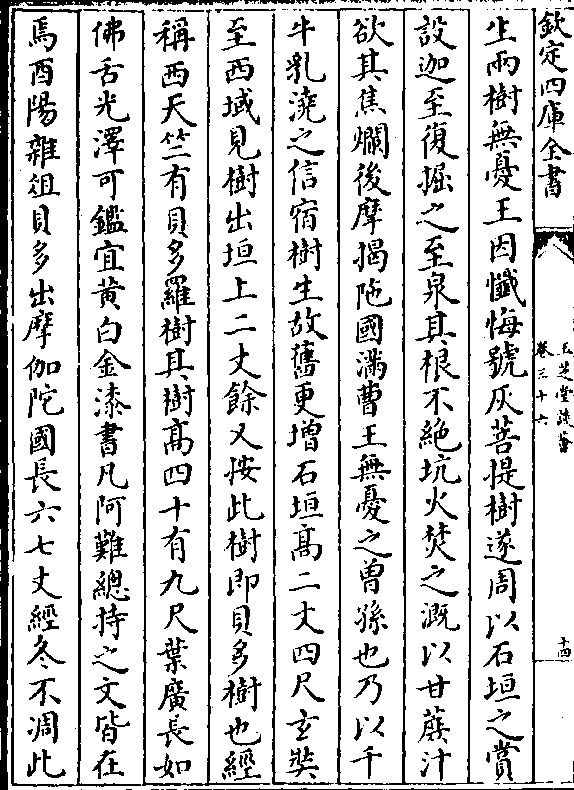 欽定四庫全書
玉芝堂談薈
卷三十六
十四
生兩樹無憂王因懺悔號灰菩提樹遂周以石垣之賞
設迦至復掘之至泉其根不絶坑火焚之溉以甘蔗汁
欲其焦爛後摩揭陁國滿曹王無憂之曾孫也乃以千
牛乳澆之信宿樹生故舊更增石垣高二丈四尺玄奘
至西域見樹出垣上二丈餘又按此樹即貝多樹也經
稱西天竺有貝多羅樹其樹高四十有九尺葉廣長如
佛舌光澤可鑑宜黄白金漆書凡阿難總持之文皆在
焉酉陽雜俎貝多出摩伽陀國長六七丈經冬不凋此